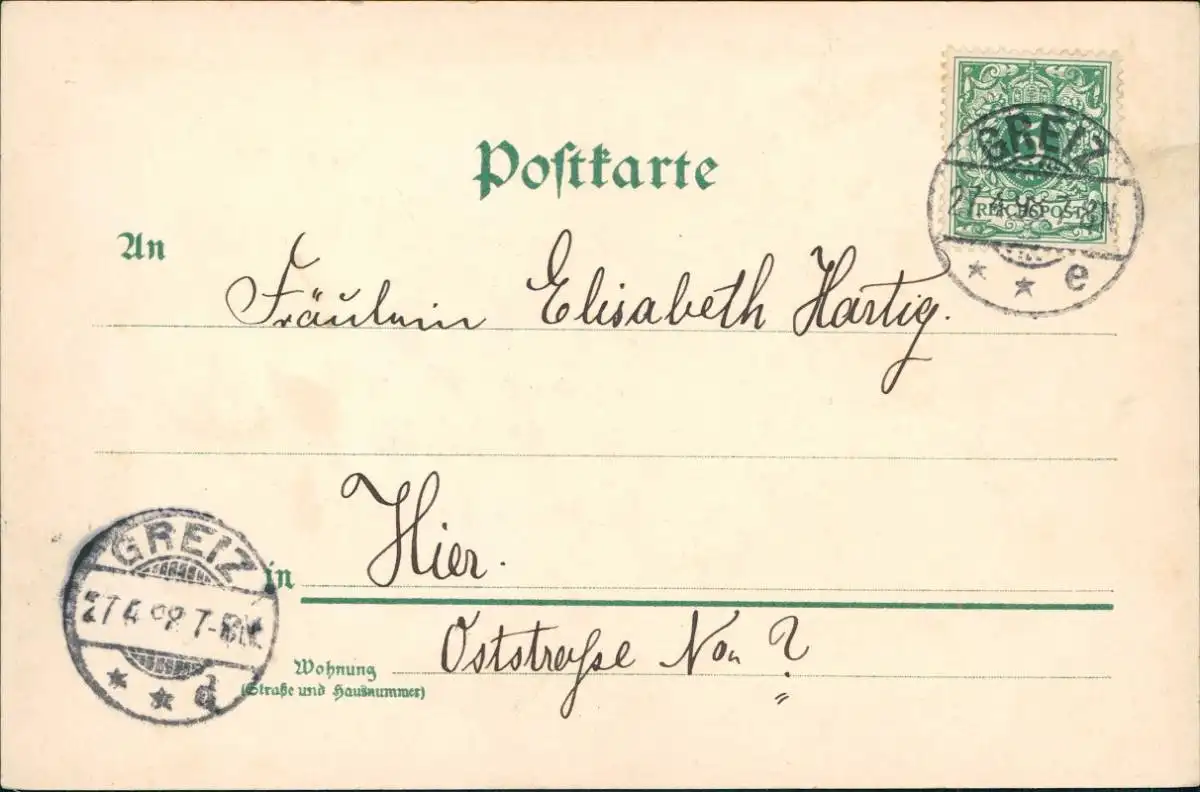 Postkarte
GREIZ
REICHSPOST
e
An
Fräulein Elisabeth Hartig.
in Hier.
GREIZ
27 4 98 7-8N.
d
Wohnung Oststraße No. ?
(Straße und Hausnummer)